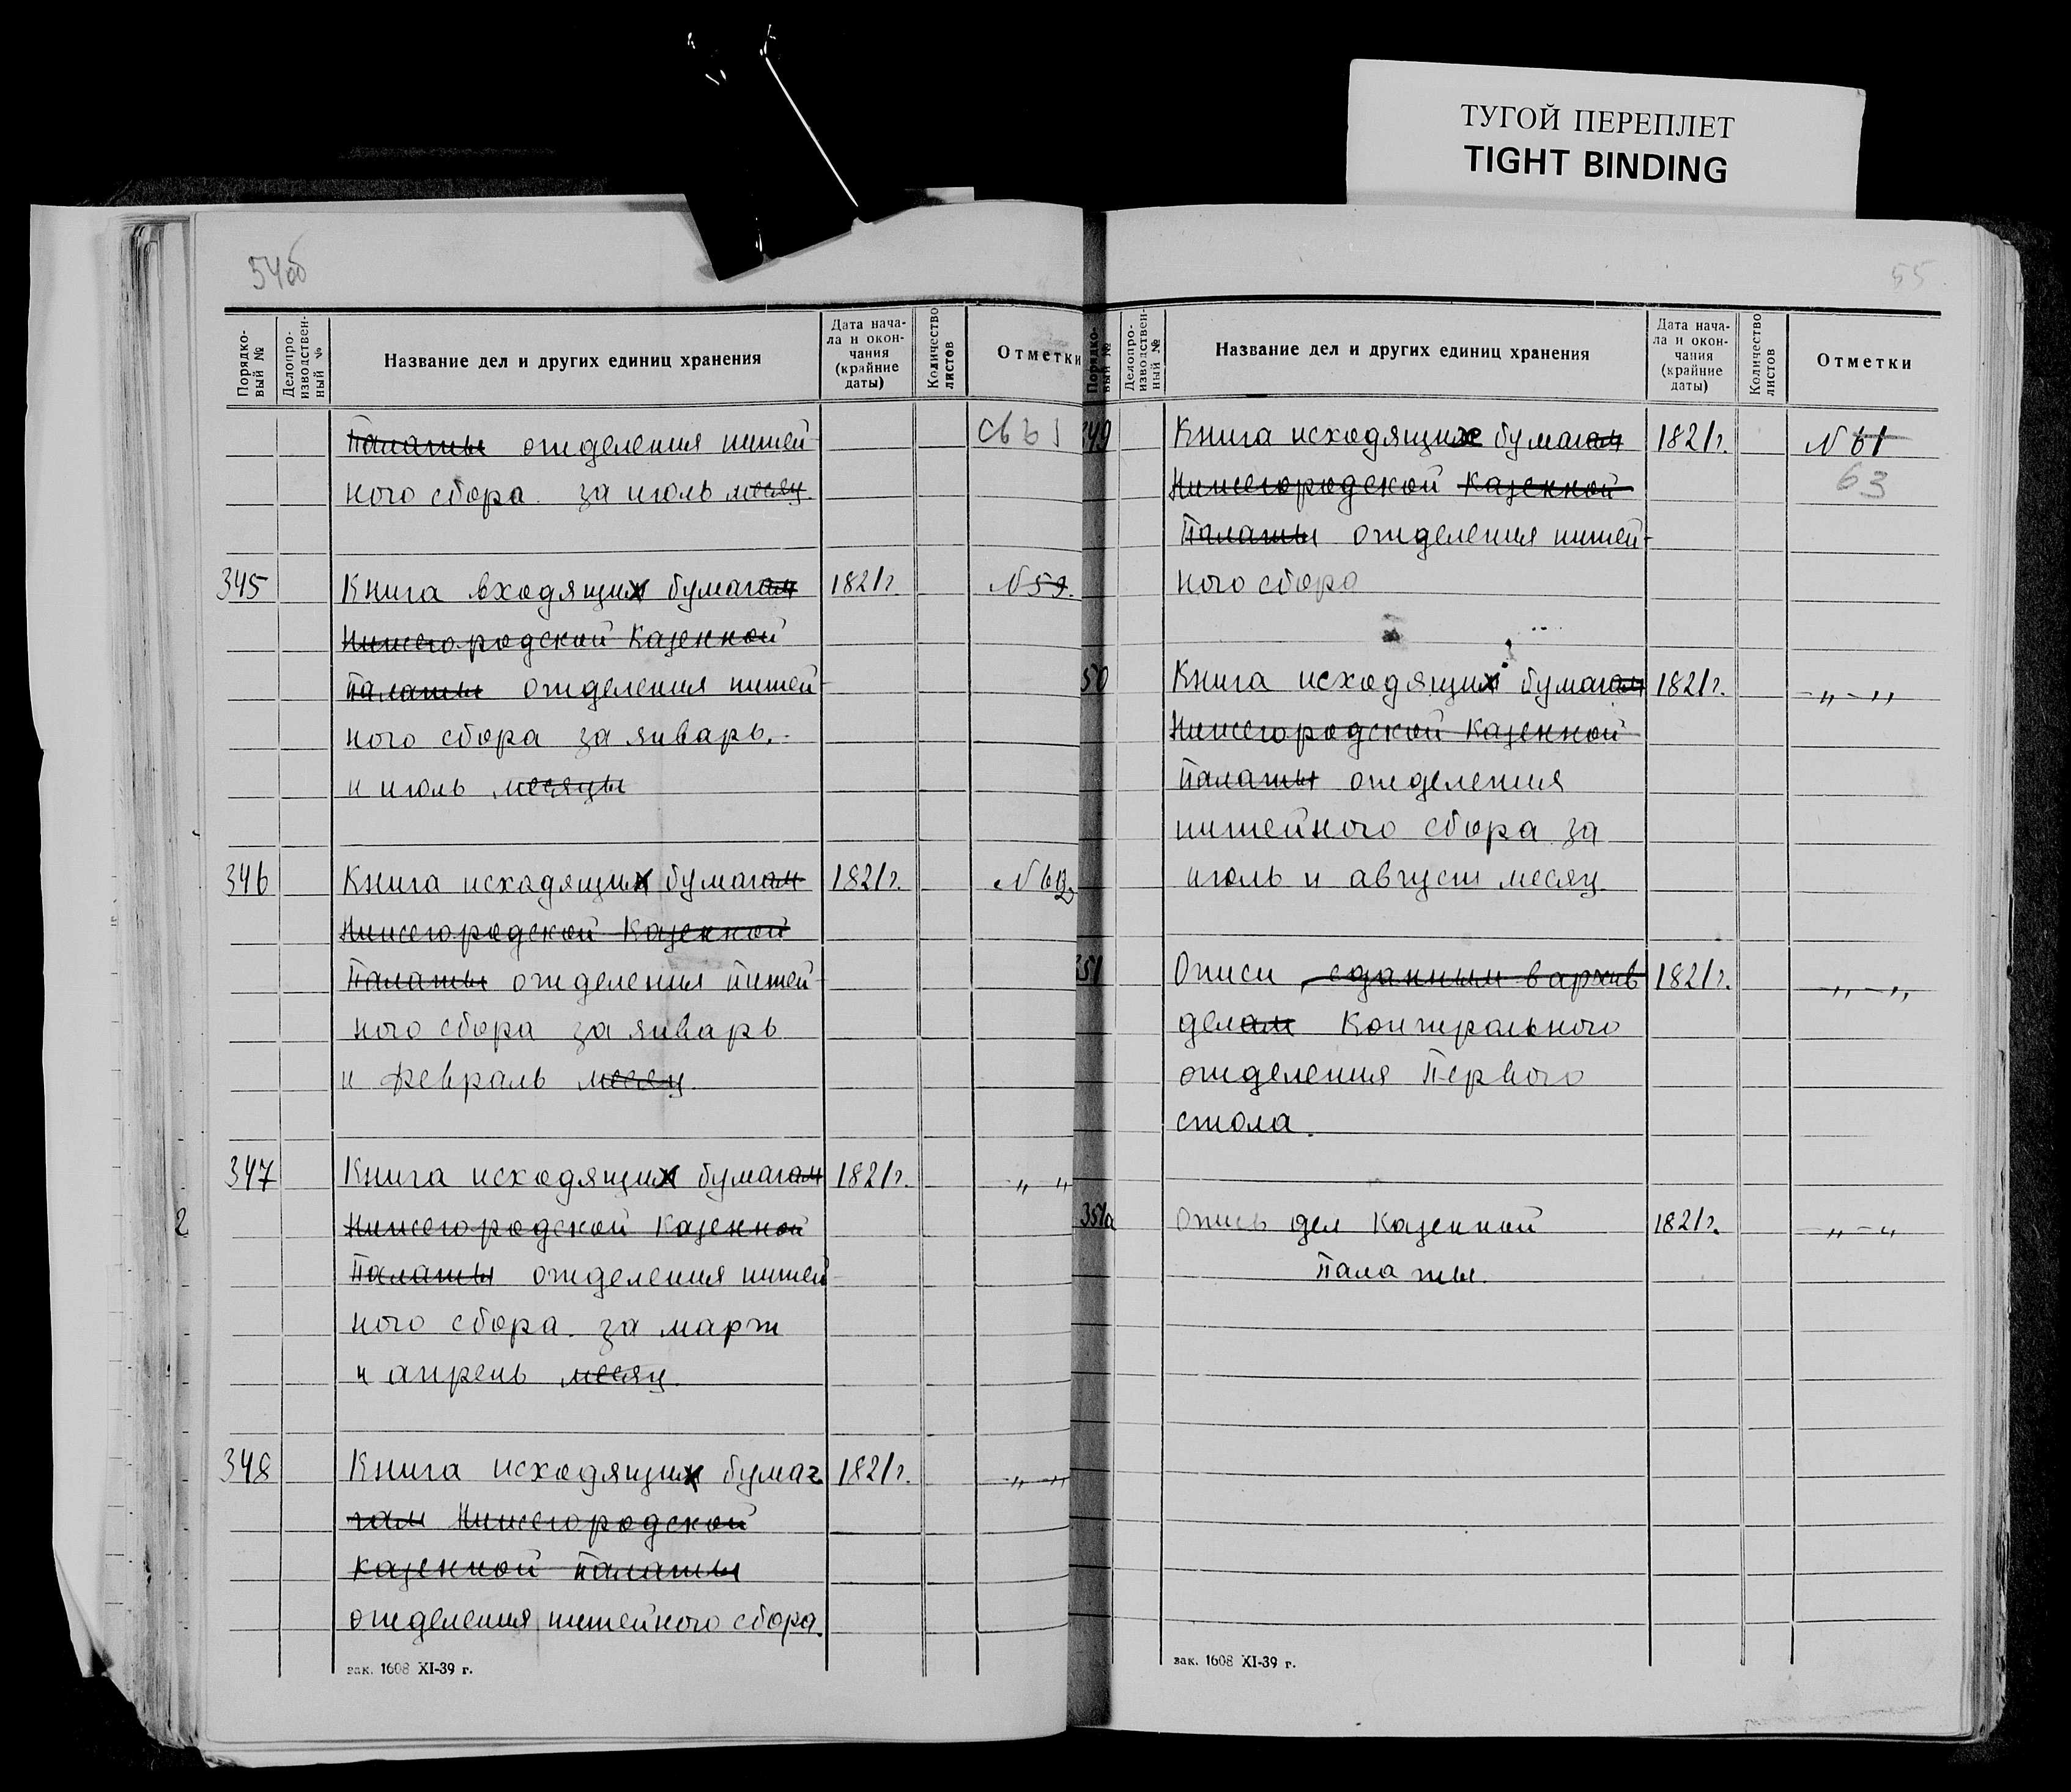 ТУГОЙ ПЕРЕПЛЕТ
TIGHT BINDING
54об
Порядко-
вый №
Делопро-
изводствен-
ный №
Название дел и других единиц хранения
Дата нача-
ла и окон-
чания
(крайние
даты)
Количество
листов
Отметки
Палаты отделения питей-
ного сбора за июль месяц
345 Книга входящих бумагам 1821г. N 59.
Нижегородской Казенной
Палаты отделения питей-
ного сбора за январь
и июль месяцы
346 Книга исходящих бумагам 1821г.
Нижегородской Казенной
Палаты отделения питей-
ного сбора за январь
и февраль месяц
347 Книга исходящих бумагам 1821г. „ „
Нижегородской Казенной
Палаты отделения питей
ного сбора за март
и апрель месяц
348 Книга исходящих бумаг 1821г. -„-„-
гам Нижегородской
казенной палаты
отделения питейного сбора.
зак. 1608 XI-39 г.
55
Порядко-
вый №
Делопро-
изводствен-
ный №
Название дел и других единиц хранения
Дата нача-
ла и окон-
чания
(крайние
даты)
Количество
листов
Отметки
349 Книга исходящих бумагам 1821г. N 61
Нижегородской Казенной 63
Палаты отделения питей-
ного сбора
50 Книга исходящих бумагам 1821г. -„-„
Нижегородской Казенной
Палаты отделения
питейного сбора за
июль и август месяц
351 Описи сданным в архив 1821г. -„-„
делам Контрольного
отделения Первого
стола.
351а Опись дел Казенной 1821г. -„-„
Палаты.
зак. 1608 XI-39 г.